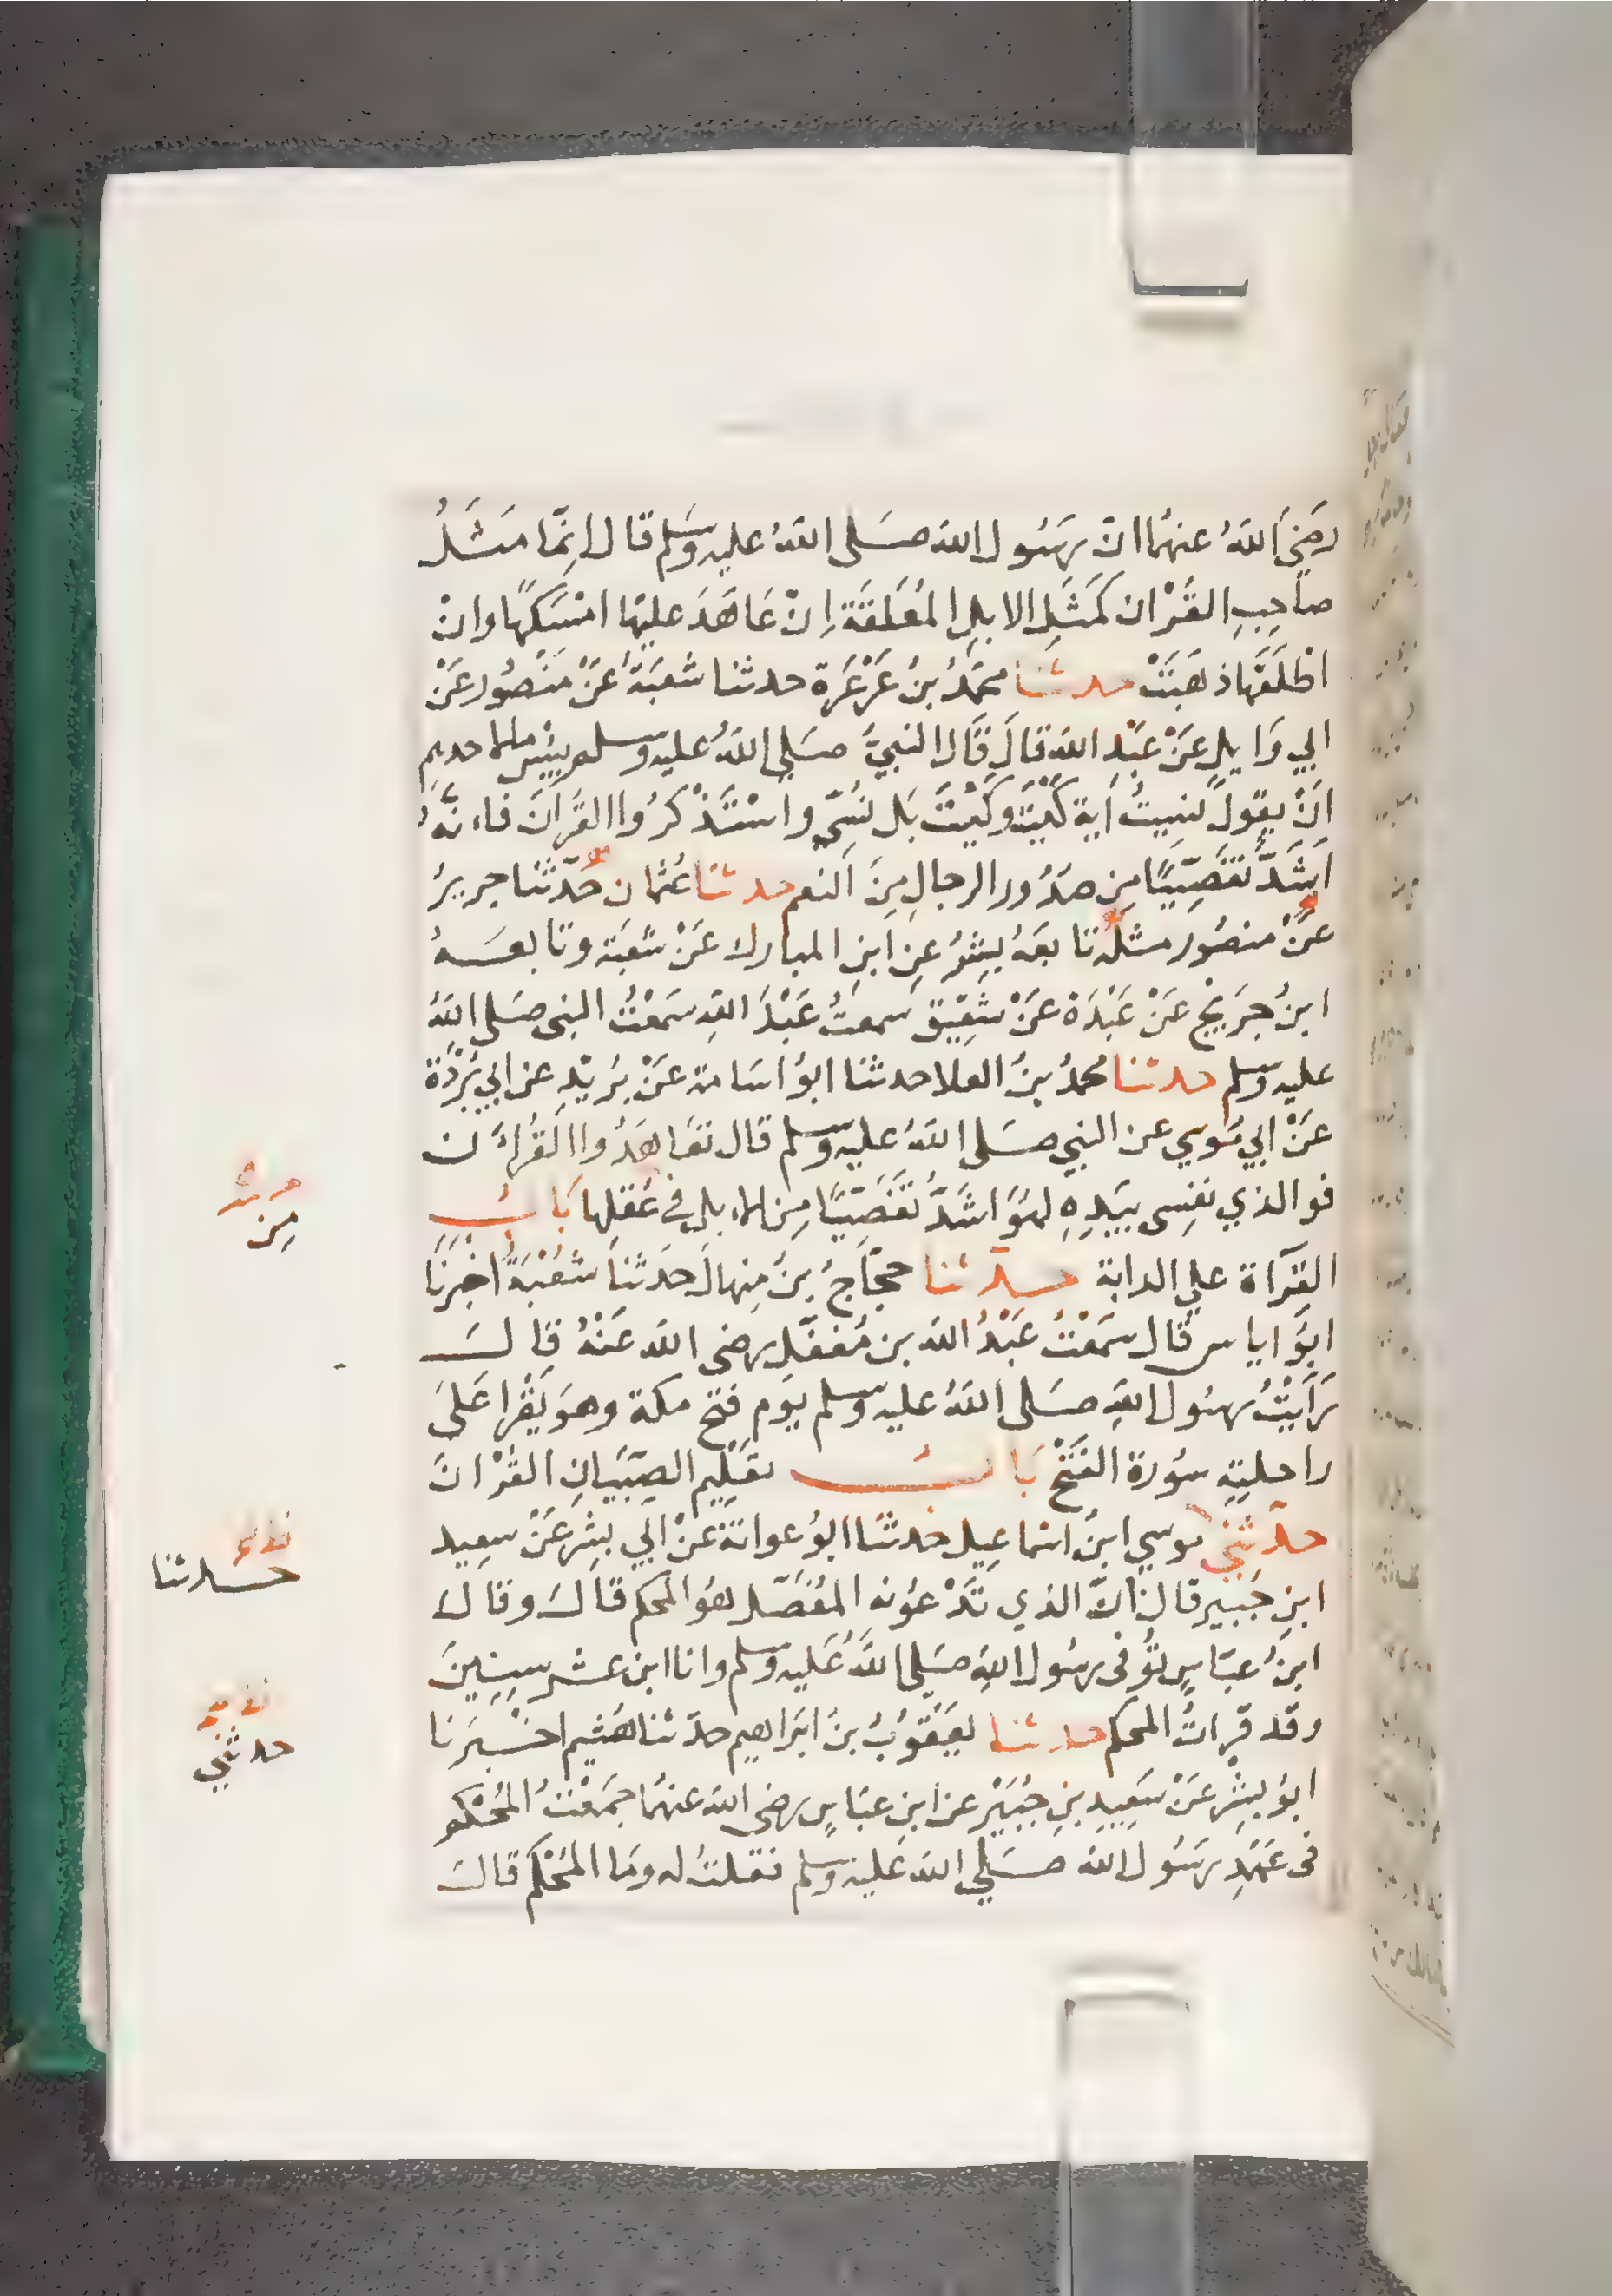 رضي الله عنهما ان رسول الله صلى الله عليه وسلم قال انما مثل
صاحب القران كمثل الابل المعلقة ان عاهد عليها امسكها وان
اطلقها ذهبت حدثنا محمد بن عرعرة حدثنا شعبة عن منصور عن
ابي وايل عن عبد الله قال قال النبي صلى الله عليه وسلم بئس ما لاحدهم
ان يقول نسيت آية كيت وكيت بل نسي واستذكروا القرآن فانه
اشد تفصيا من صدور الرجال من النعم حدثنا عثمان حدثنا جرير
عن منصور مثله تابعه بشر عن ابن المبارك عن شعبة وتابعه
ابن جريج عن عبدة عن شقيق سمعت عبد الله سمعت النبي صلى الله
عليه وسلم حدثنا محمد بن العلا حدثنا ابو اسامة عن بريد عن ابي بردة
عن ابي موسي عن النبي صلى الله عليه وسلم قال تعاهدوا القرآن
فوالذي نفسي بيده لهو اشد تفصيا من الابل في عقلها باب
القرآة علي الدابة حدثنا حجاج بن منهال حدثنا شعبة اخبرنا
ابو اياس قال سمعت عبد الله بن مغفل رضي الله عنه قال
رأيت رسول الله صلى الله عليه وسلم يوم فتح مكة وهو يقرا على
راحلته سورة الفتح باب تعليم الصبيان القران
حدثني موسي ابن اسماعيل حدثنا ابو عوانة عن ابي بشر عن سعيد
ابن جبير قال ان الذي تدعونه المفصل هو المحكم قال وقال
ابن عباس توفى رسول الله صلى الله عليه وسلم وانا ابن عشر سنين
وقد قرات المحكم حدثنا يعقوب بن ابراهيم حدثنا هشيم اخبرنا
ابو بشر عن سعيد بن جبير عن ابن عباس رضي الله عنهما جمعت المحكم
في عهد رسول الله صلى الله عليه وسلم فقلت له وما المحكم قال
من
حدثنا
حدثني